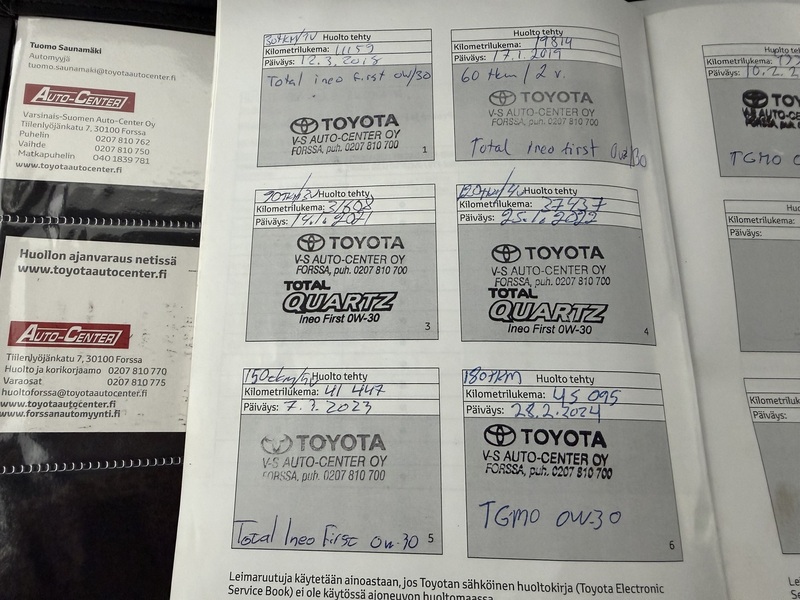 Tuomo Saunamäki
Automyyjä
tuomo.saunamaki@toyotaautocenter.fi
AUTO-CENTER
Varsinais-Suomen Auto-Center Oy
Tiilenlyöjänkatu 7, 30100 Forssa
Puhelin 0207 810 762
Vaihde 0207 810 750
Matkapuhelin 040 1839 781
www.toyotaautocenter.fi
Huollon ajanvaraus netissä
www.toyotaautocenter.fi
AUTO-CENTER
Tiilenlyöjänkatu 7, 30100 Forssa
Huolto ja korikorjaamo 0207 810 770
Varaosat 0207 810 775
huoltoforssa@toyotaautocenter.fi
www.toyotaautocenter.fi
www.forssanautomyynti.fi
30tkm/1V Huolto tehty
Kilometrilukema: 11159
Päiväys: 12.3.2018
Total ineo first 0w/30
TOYOTA
V-S AUTO-CENTER OY
FORSSA, puh. 0207 810 700
1
Huolto tehty
Kilometrilukema: 19814
Päiväys: 17.1.2019
60 tkm / 2 v.
TOYOTA
V-S AUTO-CENTER OY
FORSSA, puh. 0207 810 700
Total Ineo first 0w/30
90tkm/3V Huolto tehty
Kilometrilukema: 31608
Päiväys: 19.1.2021
TOYOTA
V-S AUTO-CENTER OY
FORSSA, puh. 0207 810 700
TOTAL
QUARTZ
Ineo First 0W-30
3
120tkm/4V Huolto tehty
Kilometrilukema: 37437
Päiväys: 25.1.2022
TOYOTA
V-S AUTO-CENTER OY
FORSSA, puh. 0207 810 700
TOTAL
QUARTZ
Ineo First 0W-30
4
Huolto tehty
Kilometrilukema: 41 447
Päiväys: 7.3.2023
TOYOTA
V-S AUTO-CENTER OY
FORSSA, puh. 0207 810 700
Total Ineo First 0w-30
5
180tkm Huolto tehty
Kilometrilukema: 45 095
Päiväys: 28.2.2024
TOYOTA
V-S AUTO-CENTER OY
FORSSA, puh. 0207 810 700
TGMO 0W-30
6
Kilometrilukema:
Päiväys: 10.2.2
TGMO
Kilometrilukema:
Päiväys:
Päiväys:
Leimaruutuja käytetään ainoastaan, jos Toyotan sähköinen huoltokirja (Toyota Electronic
Service Book) ei ole käytössä ajoneuvon huoltomaassa.